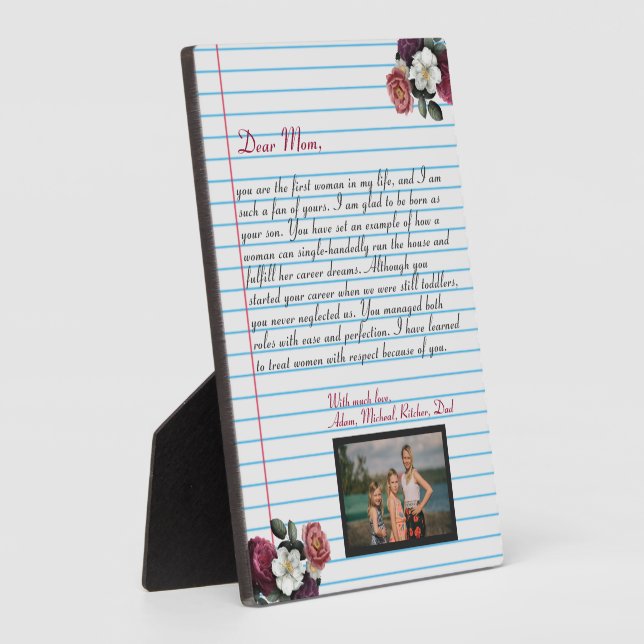 Dear Mom,
you are the first woman in my life, and I am
such a fan of yours. I am glad to be born as
your son. You have set an example of how a
woman can single-handedly run the house and
fulfill her career dreams. Although you
started your career when we were still toddlers,
you never neglected us. You managed both
roles with ease and perfection. I have learned
to treat women with respect because of you.
With much love,
Adam, Micheal, Ritcher, Dad